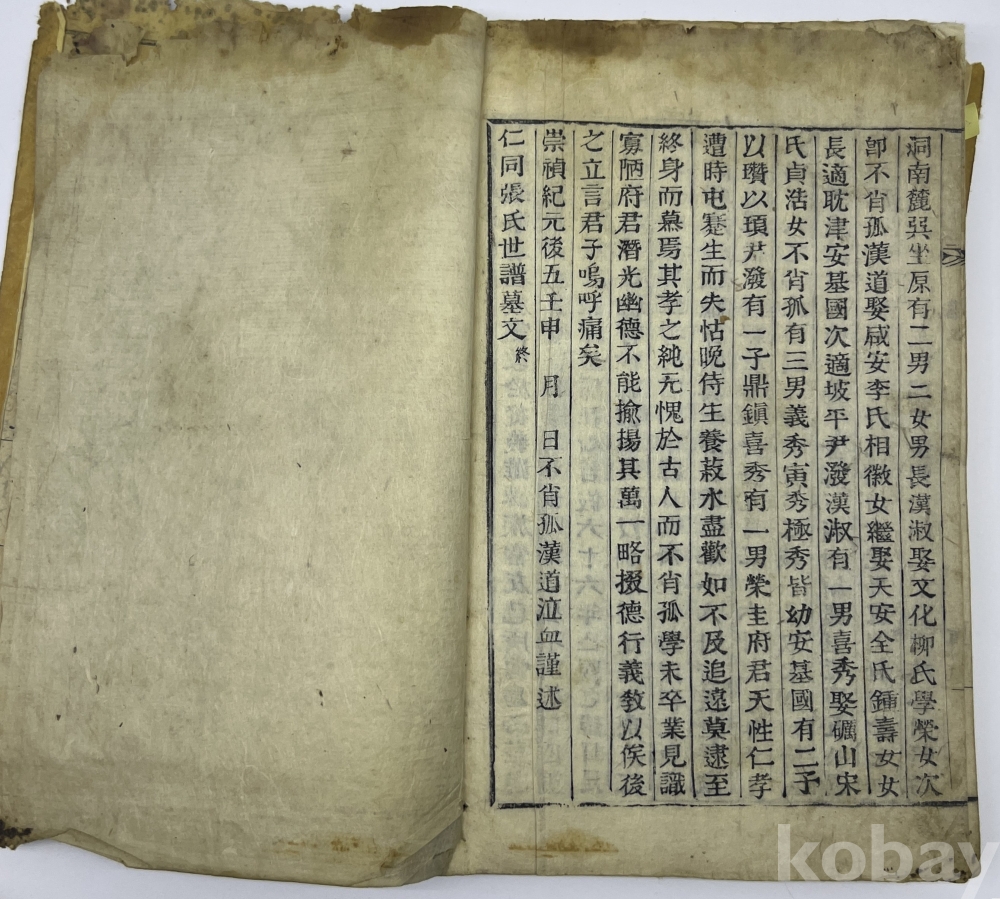 洞南麓巽坐原有二男二女男長漢淑娶文化柳氏學榮女次
卽不肖孤漢道娶咸安李氏相徽女繼娶天安全氏鍾壽女女
長適耽津安基國次適坡平尹潑漢淑有一男喜秀娶礪山宋
氏貞浩女不肖孤有三男義秀寅秀極秀皆幼安基國有二子
以瓚以頊尹潑有一子鼎鎭喜秀有一男榮圭府君天性仁孝
遭時屯蹇生而失怙晩侍生養菽水盡歡如不及追遠莫逮至
終身而慕焉其孝之純无愧於古人而不肖孤學未卒業見識
寡陋府君潛光幽德不能揄揚其萬一略掇德行義敎以俟後
之立言君子嗚呼痛矣
崇禎紀元後五壬申 月 日不肖孤漢道泣血謹述
仁同張氏世譜墓文 終
kobay